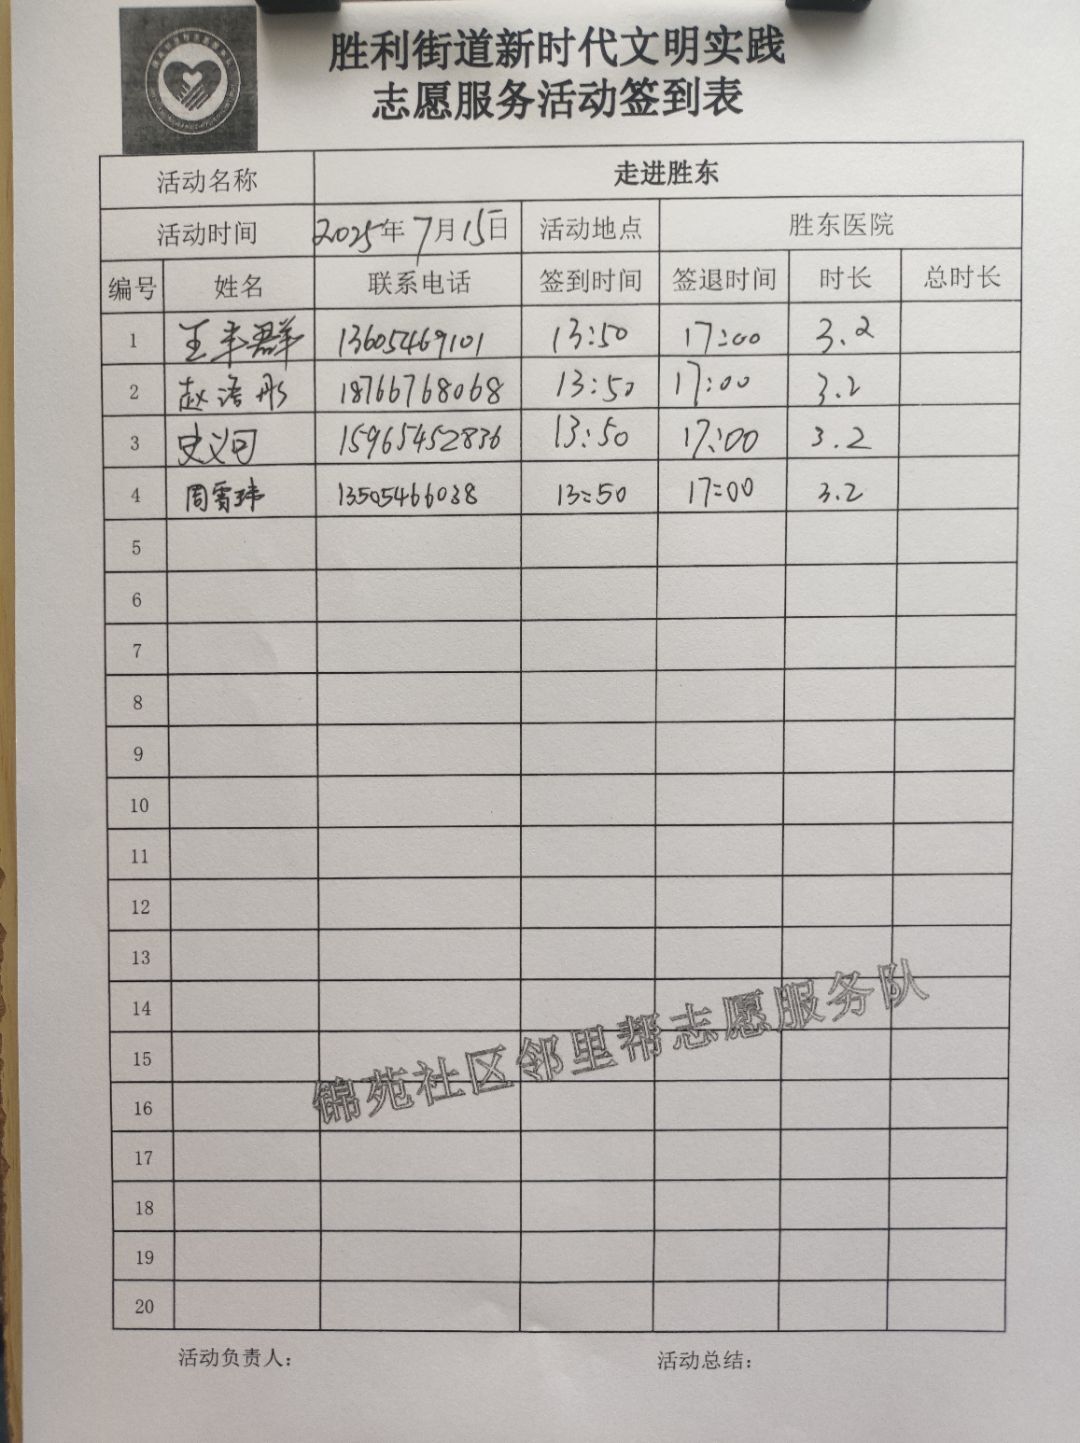 胜利街道新时代文明实践
志愿服务活动签到表
活动名称 走进胜东
活动时间 2025年7月15日 活动地点 胜东医院
编号 姓名 联系电话 签到时间 签退时间 时长 总时长
1 王丰群 13605469101 13:50 17:00 3.2
2 赵浩彤 18766768068 13:50 17:00 3.2
3 史义 15965452836 13:50 17:00 3.2
4 周雪玮 13505466038 13:50 17:00 3.2
5
6
7
8
9
10
11
12
13
14
15
16
17
18
19
20
锦苑社区邻里帮志愿服务队
活动负责人： 活动总结：